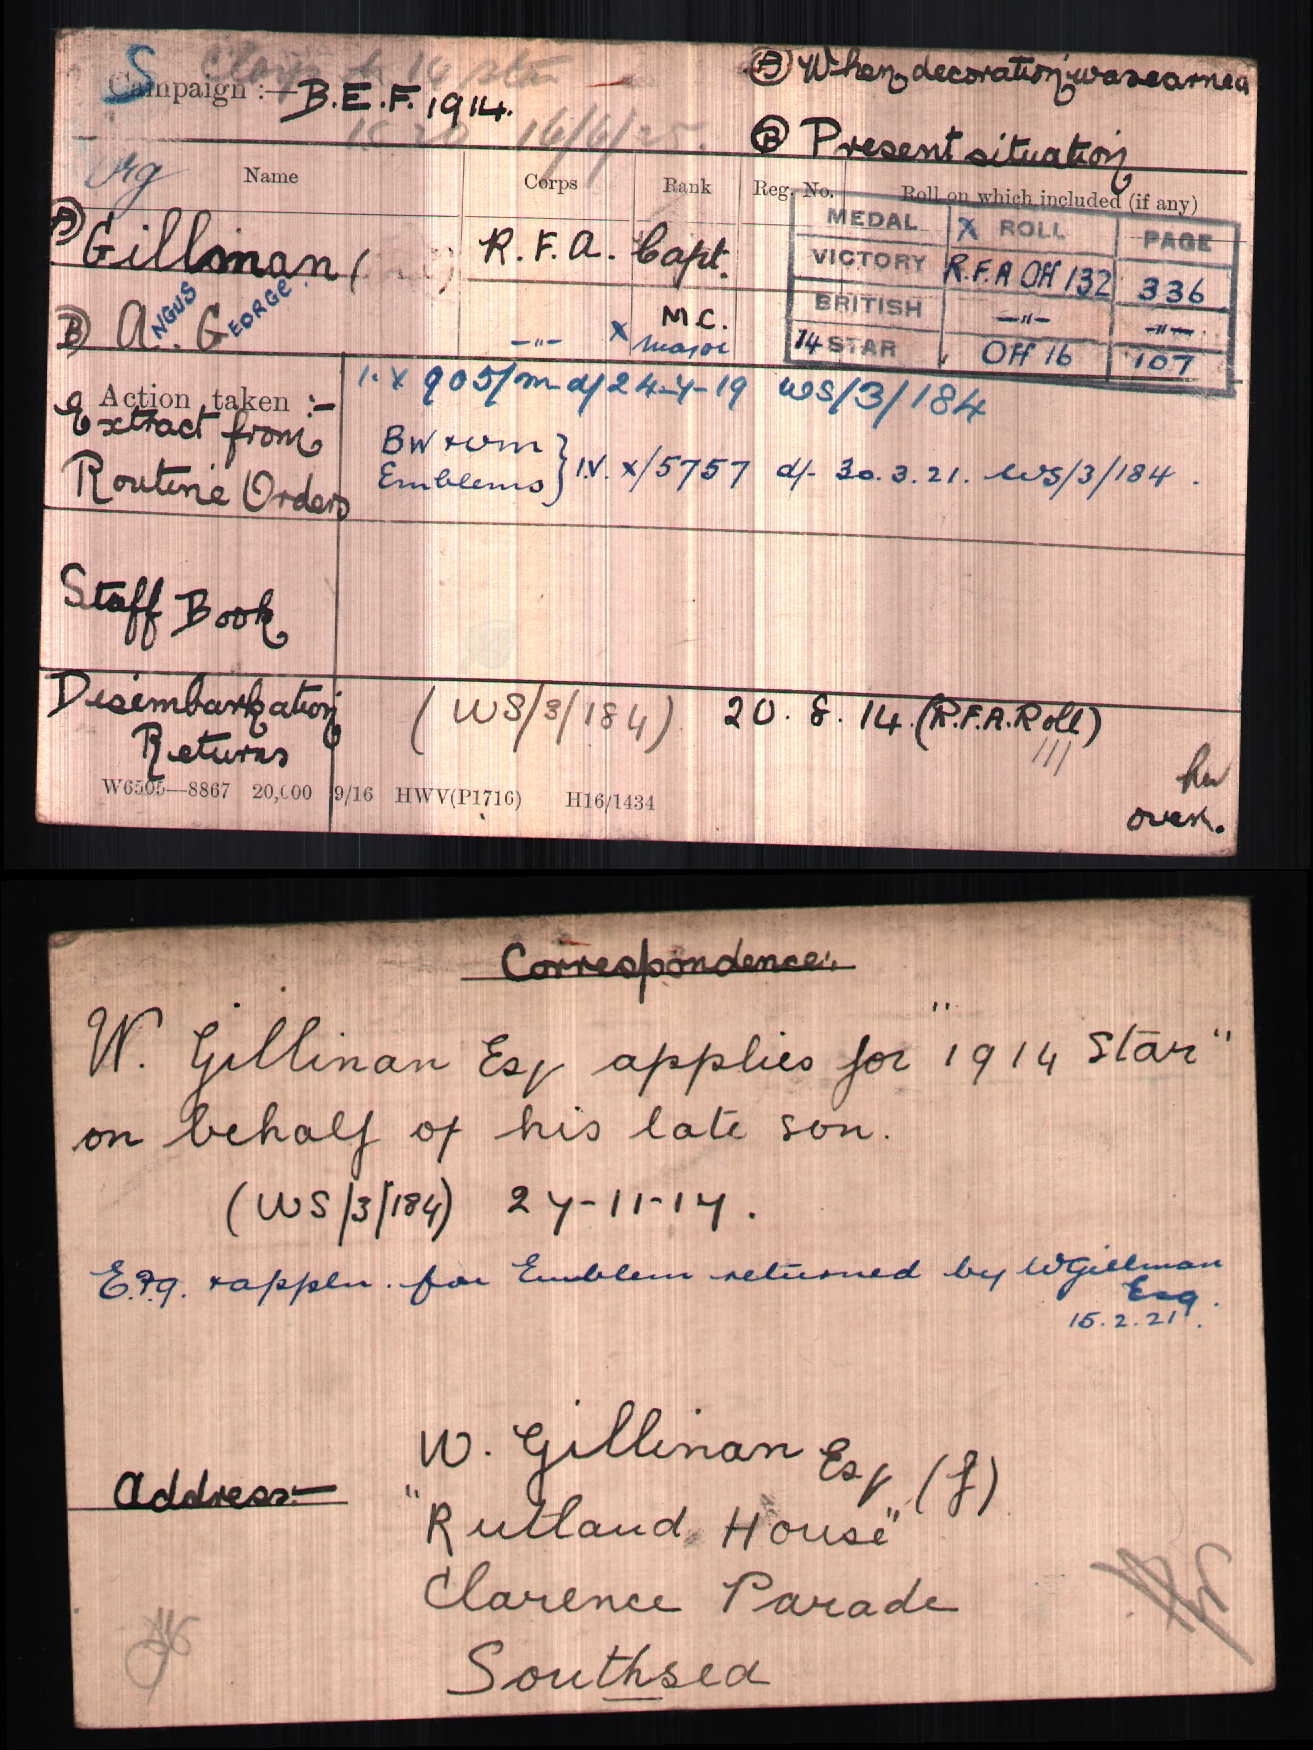 S Clasp to 14 star
Campaign :— B.E.F. 1914.
(A) When decoration was earned
16/6/25.
(B) Present situation
Name Corps Rank Reg. No. Roll on which included (if any)
MEDAL X ROLL PAGE
(A) Gillman ( R.F.A. Capt.
VICTORY R.F.A Off 132 336
M.C.
BRITISH —"— —"—
(B) A.NGUS GEORGE. —"— X Major
14 STAR Off 16 107
Action taken :— I.V X 905/m d/ 24-4-19 WS/3/184
Extract from
Routine Orders
BW & VM
Emblems } I.V. X/5757 d/- 30.3.21. WS/3/184.
Staff Book
Disembarkation
Returns
(WS/3/184) 20. 8. 14. (R.F.A. Roll)
W6505—8867 20,000 9/16 HWV(P1716) H16/1434
over.
Correspondence:.
W. Gillman Esq applies for "1914 Star"
on behalf of his late son.
(WS/3/184) 24-11-17.
appln. for Emblem returned by W Gillman
Esq.
15.2.21.
Address:—
W. Gillman Esq (f)
"Rutland House"
Clarence Parade
Southsea